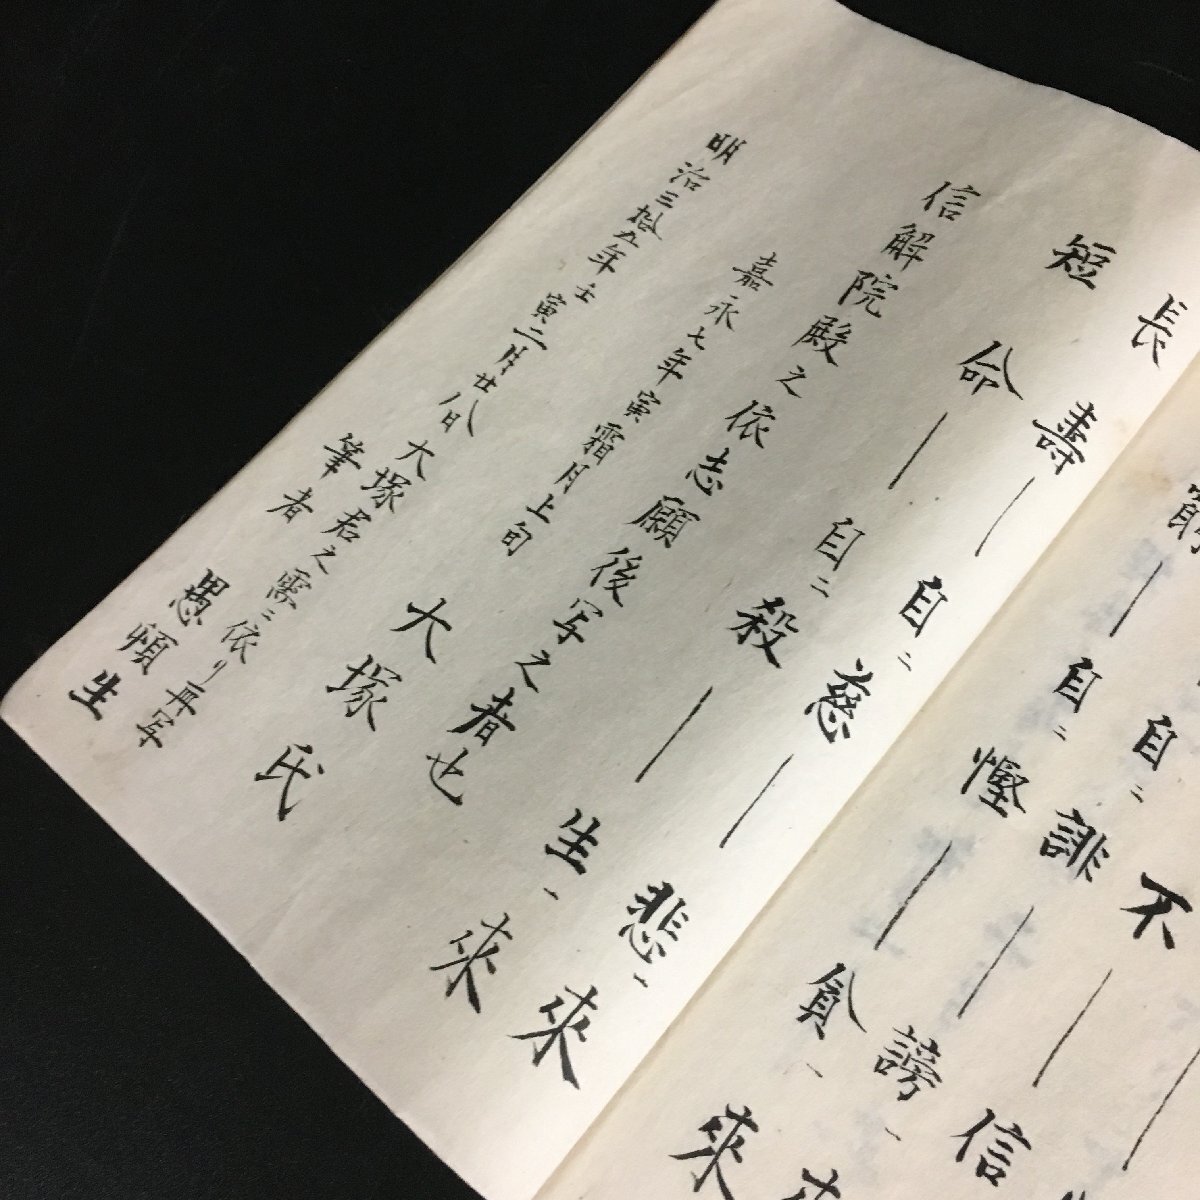 不｜信
自ニ誹｜謗一來
窮｜自ニ慳｜貪一來
長壽｜自ニ慈｜悲一來
短命｜自ニ殺｜生一來
信解院殿之依志願後写之者也
嘉永七年寅霜月上旬 大塚氏
明治三拾五年壬寅二月廿八日大塚君之需ニ依リ再写
筆者 愚頓生